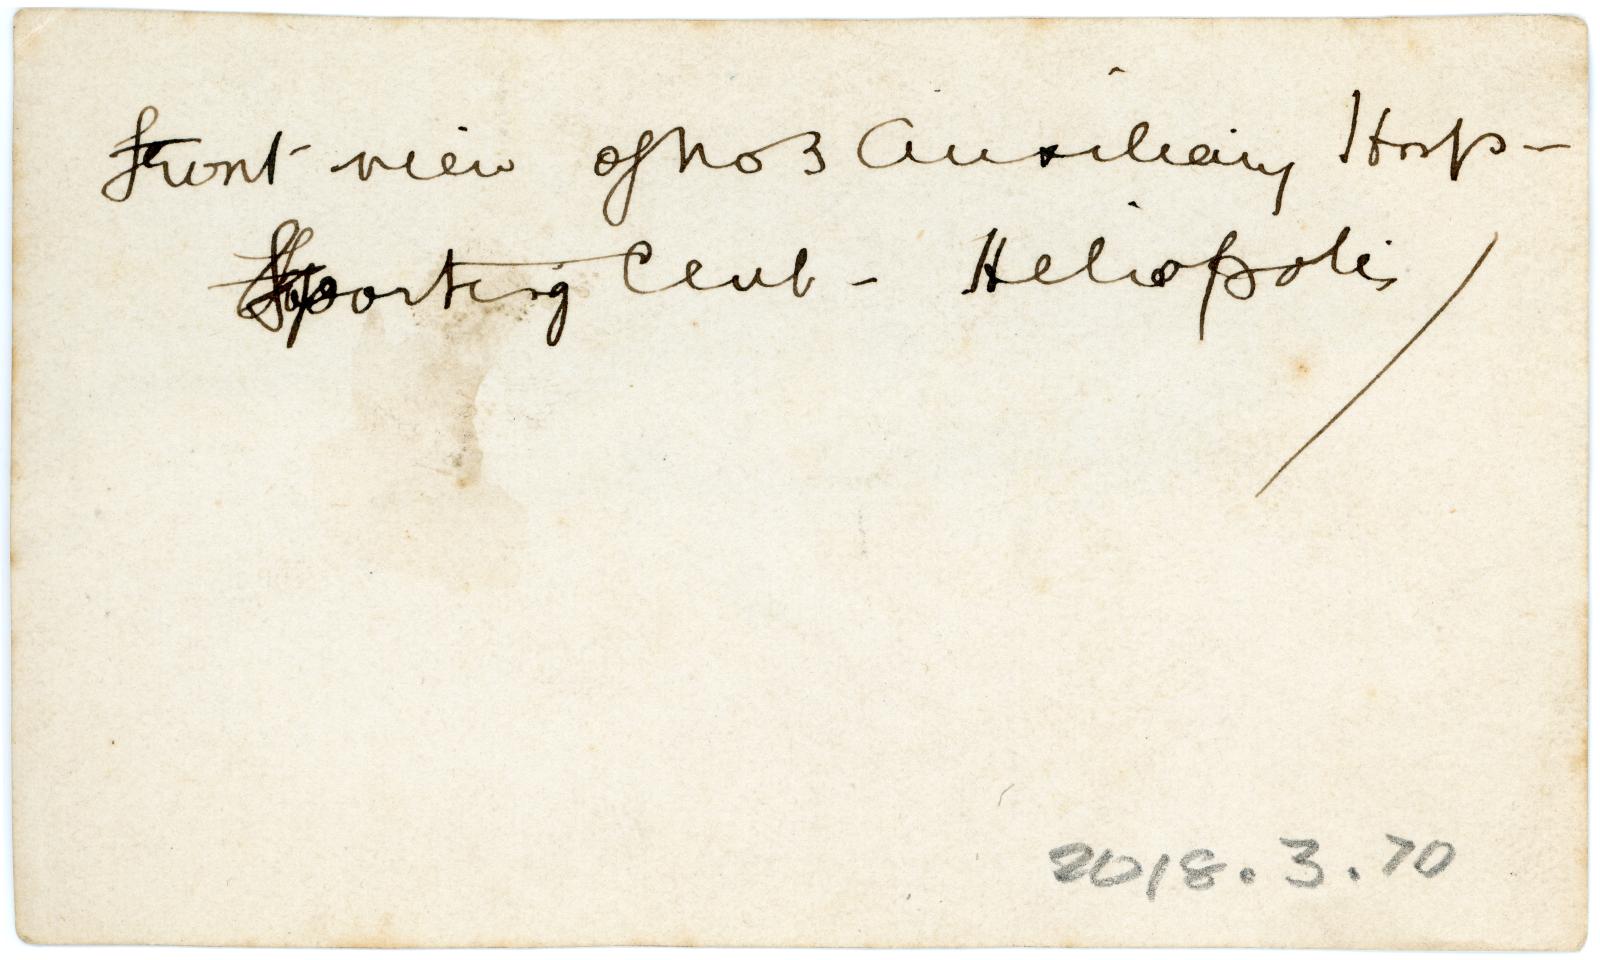 Front view of No 3 Auxiliary Hosp -
Sporting Club - Heliopolis /
2018.3.70